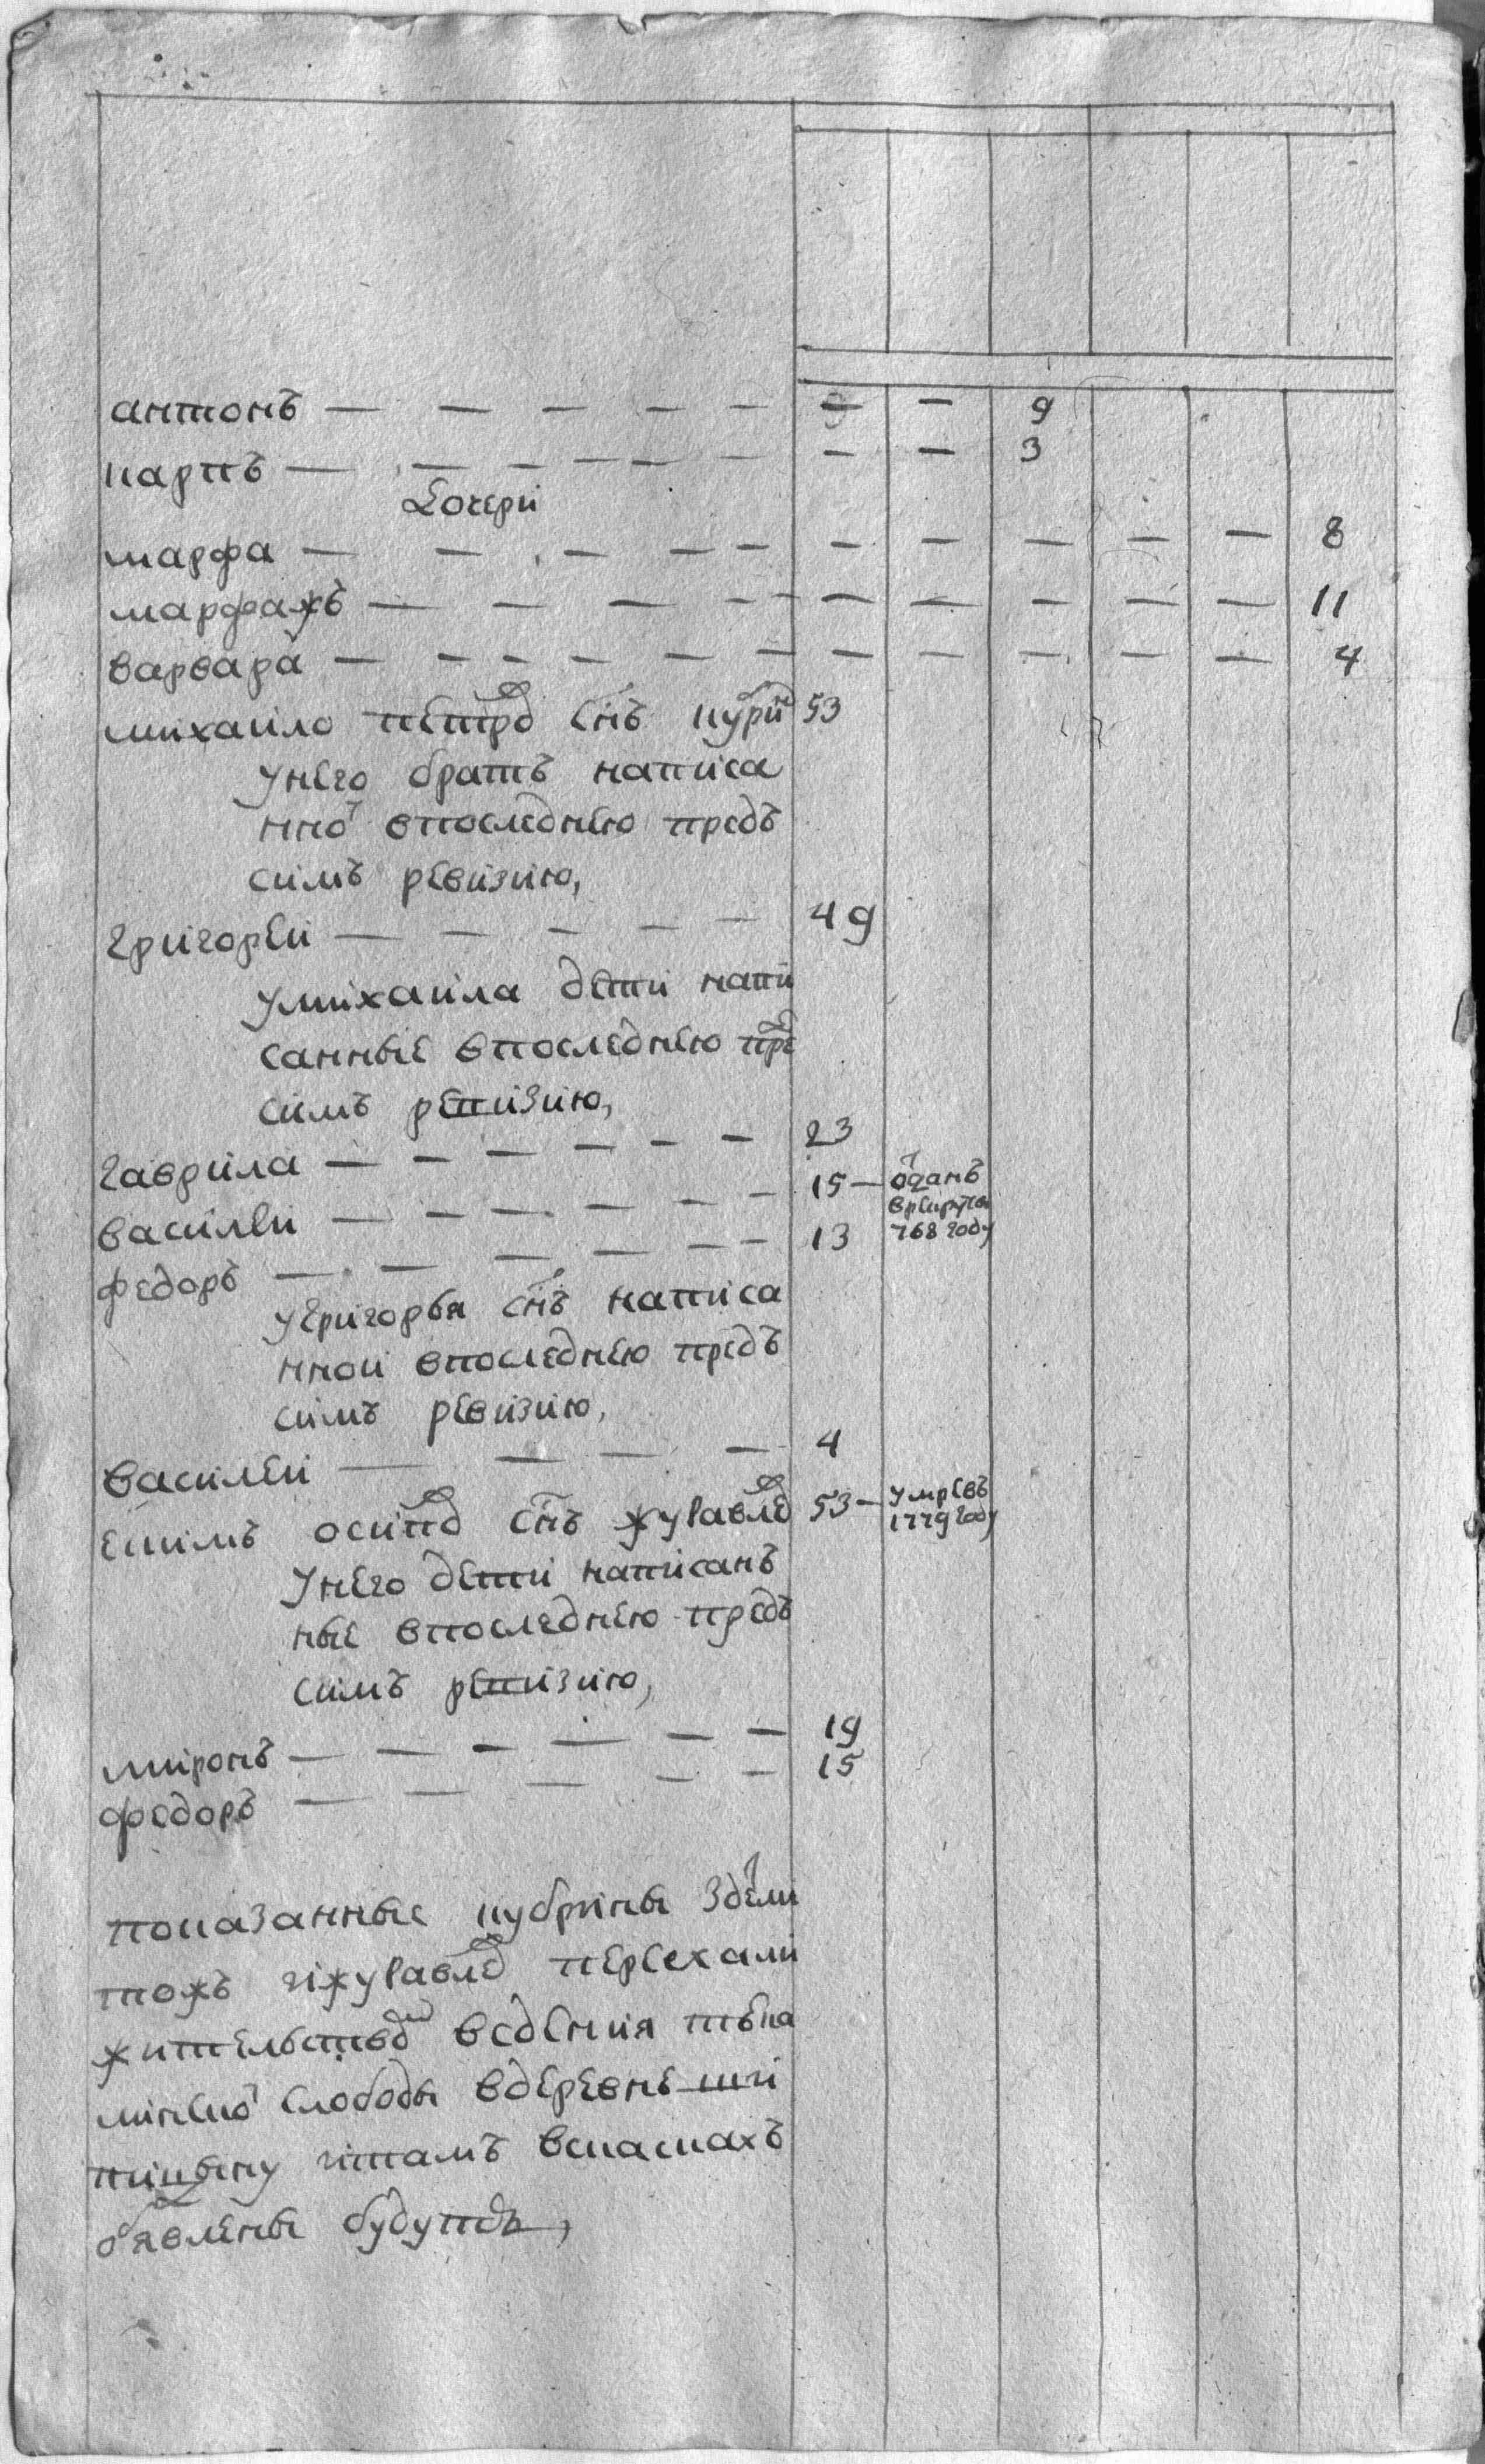 антонъ — — — — — — — 9
карпъ — — — — — — — 3
Дочери
марфа — — — — — — — — — — 8
марфажъ — — — — — — — — — 11
варвара — — — — — — — — — — — 4
михаило петров снъ 53
унего братъ написа
нной впоследнею предъ
симъ ревизию,
григореи — — — — — 49
умихаила дети напи
санные впоследнею пред
симъ ревизию,
гаврила — — — — — — 23
василеи — — — — — — 15 — отданъ
врекруты
федоръ — — — — — — 13 768 году
угригорья снъ написа
нной впоследнею предъ
симъ ревизию,
василеи — — — — 4
екимъ осипов снъ журавлев 53 — умре въ
1779 году
унего дети написанъ
ные впоследнею предъ
симъ ревизию,
миронъ — — — — — — 19
федоръ — — — — — — 15
показанные кубрины здетми
тожъ ижуравлев переехали
жительством ведения тѣка
минской слободы вдеревне ши
пицыну итамъ вскаскахъ
обявлены будутъ,